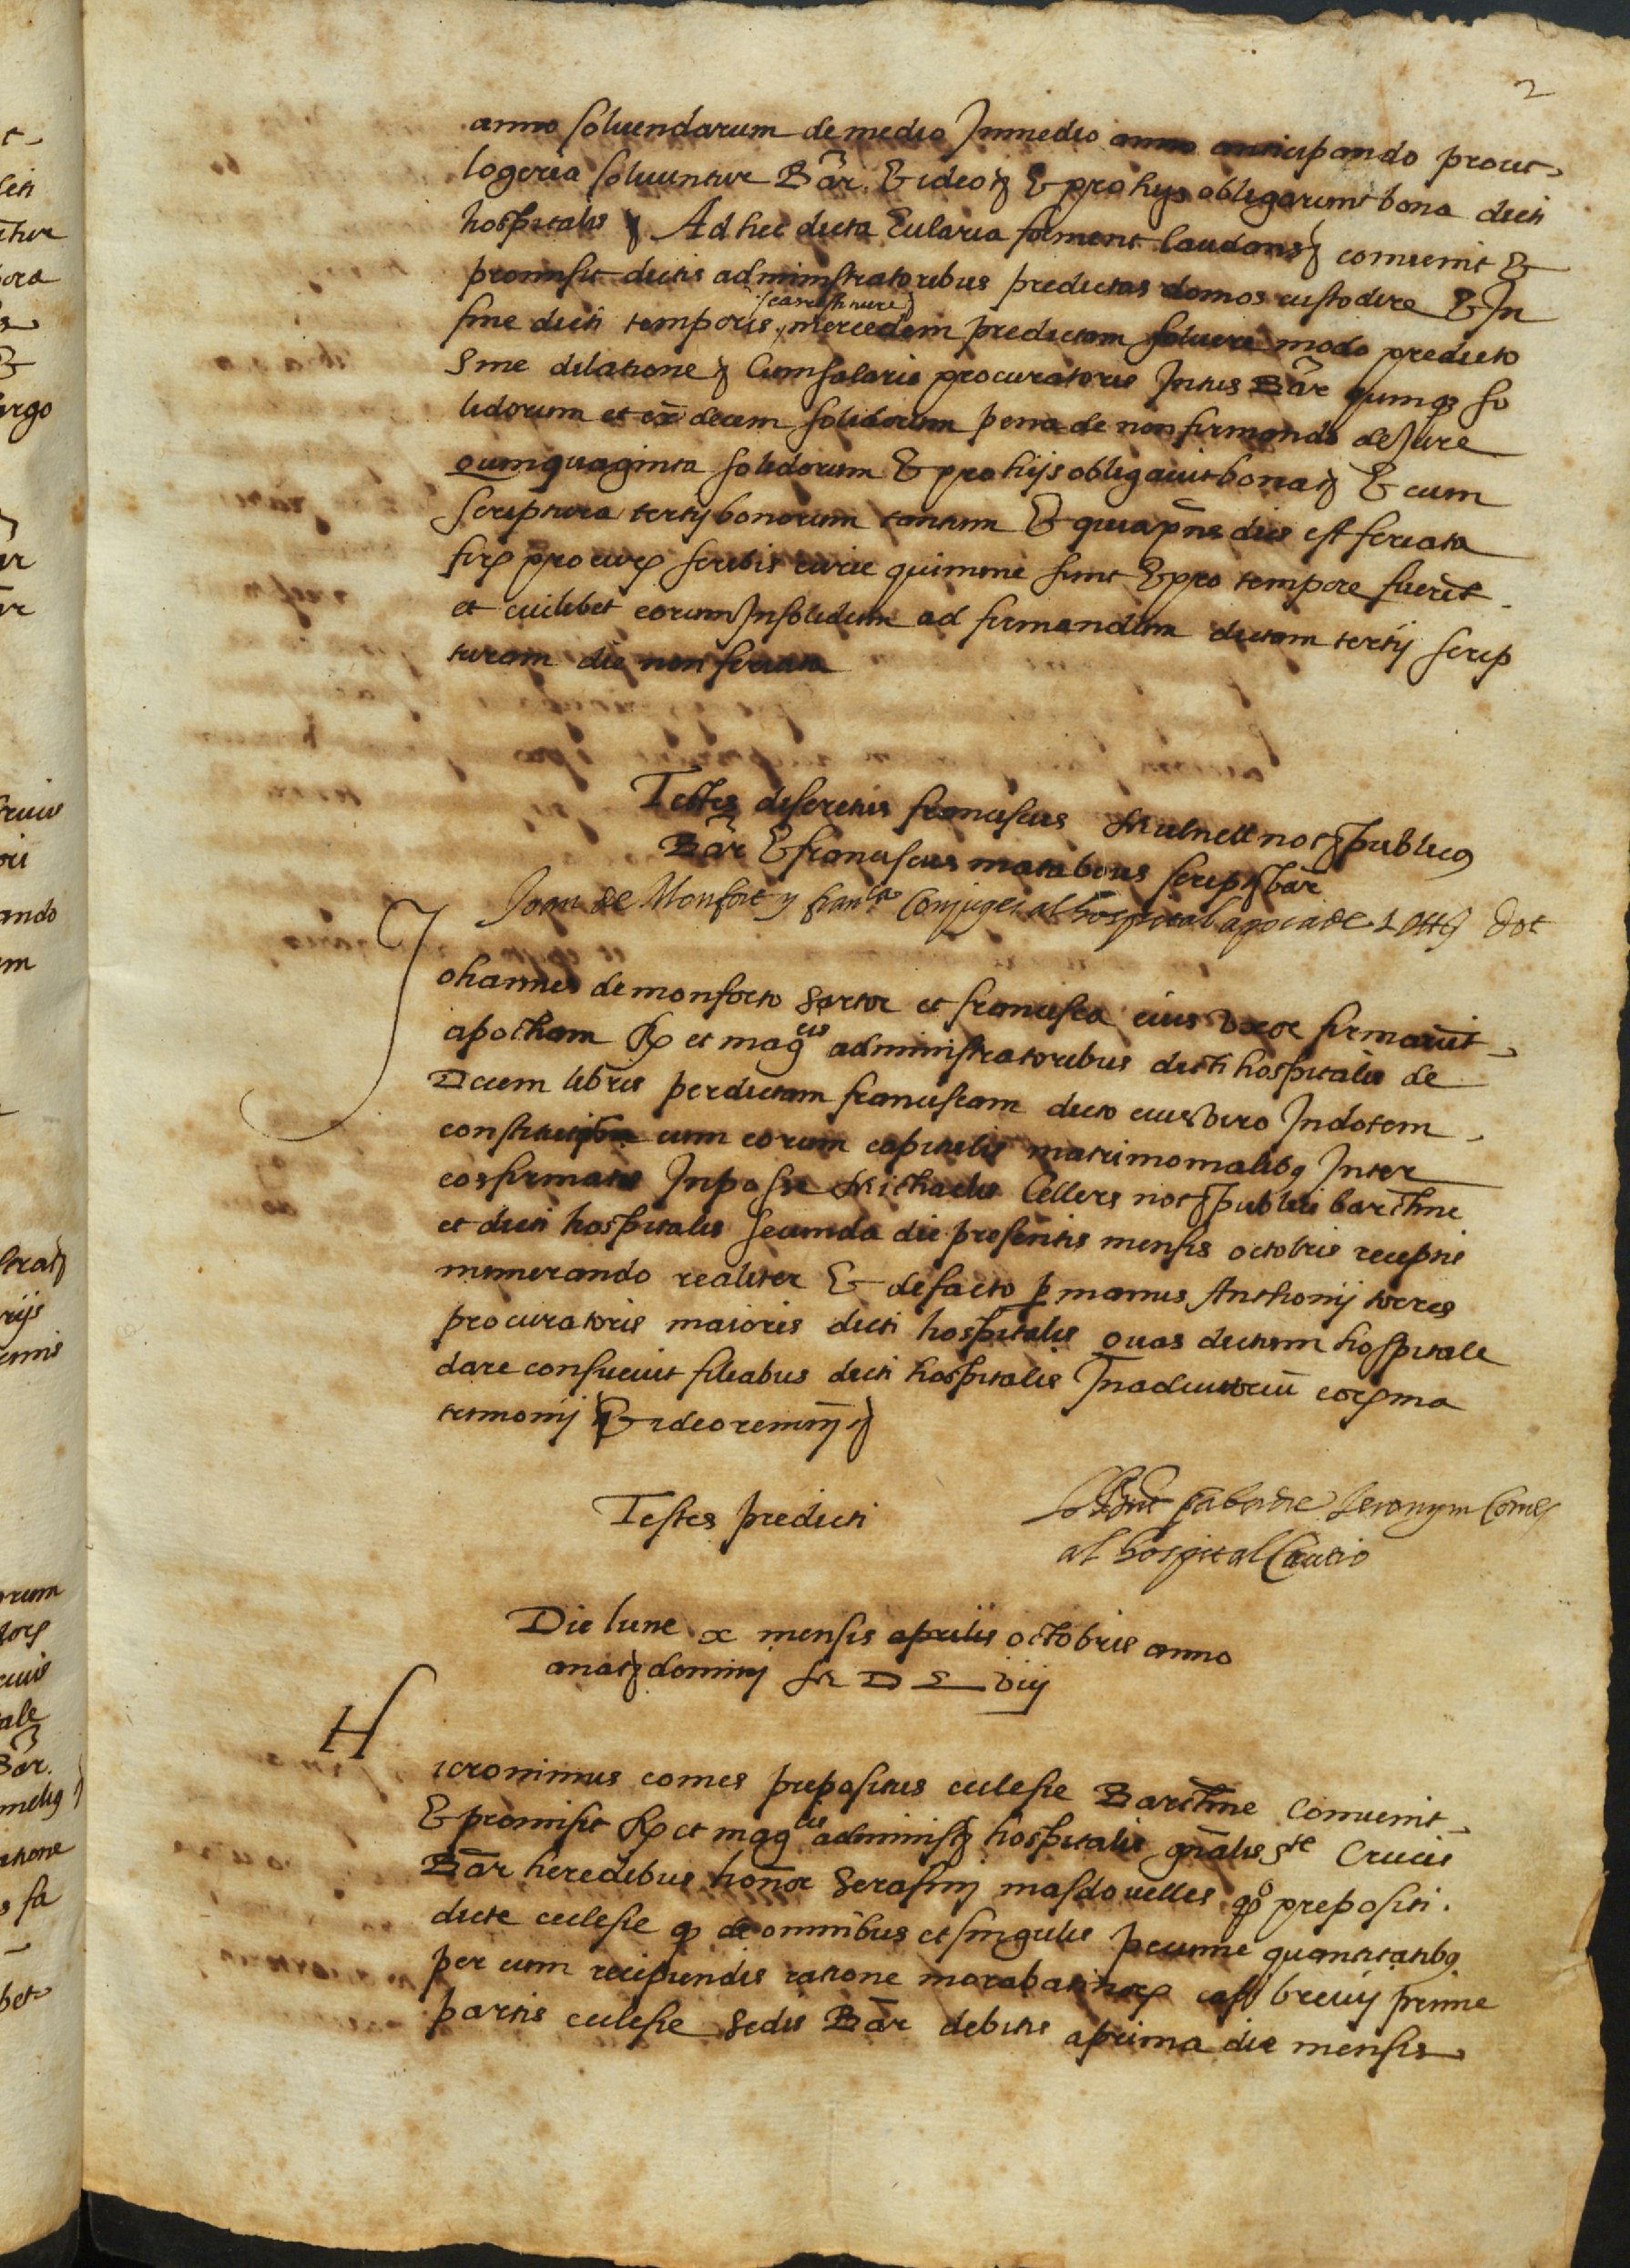 2
anno soluendarum de medio Inmedio anno anticipando prout
logeria soluuntur Bar. & ideo & pro hijs obligarunt bona dicti
hospitalis Ad hec dicta Eularia firment laudans conuenit &
promisit dictis administratoribus predictas domos custodire & In
fine dicti temporis mercedem predictam soluere modo predicto
Sine dilatione Cum salario procuratoris Intus Bar quinq so
lidorum et ex decem solidorum pena de non firmando de Jure
quinquaginta solidorum & pro hijs obligauit bona & cum
Scriptura tertij bonorum tantum & quia pns dies est feriata
firᵗ procurᵗ scribis curie qui nunc sunt & pro tempore fuerit
et cuilibet eorum Insolidum ad firmandum dictam tertij scrip
turam die non feriata
Testes discretus franciscus Mulnell not publicq
Bar & franciscus matabous script bar
Joan de Monfort y franᶜᵃ Conjuges al hospital apoca de dot
Johannes de monforto Sartor et francisca eius Vxor firmarūt
apocham R et magᶜⁱˢ administratoribus dicti hospitalis de
Decem libris per dictam franciscam dicto eius viro Indotem
constitutis cum eorum capitulis matrimonialibq Inter
eos firmatis Inposse Michaelis Cellers not publici barchne
et dicti hospitalis secunda die presentis mensis octobris receptis
numerando realiter & defacto p manus Anthonij torres
procuratoris maioris dicti hospitalis quas dictum hospitale
dare consueuit filiabus dicti hospitalis Inadiutoriū eorᵗ ma
trimonij & ideo renunᵗ
Testes predicti
Jeronym Comes
al hospital Cautio
Die lune x mensis aprilis octobris anno
anat domini M D L viij
Hieronimus comes prepositus eclesie Barchne Conuenit
& promisit R et magᶜⁱˢ administ hospitalis gnalis Sᵗᵉ Crucis
Bar heredibus honor Serafinj masdouelles qᵒ prepositi.
dicte eclesie q de omnibus et singulis pecunie quantitatibq
per eum recipiendis ratione morabatinorᵗ cap breuij prime
partis eclesie Sedis Bar debitis aprima die mensis